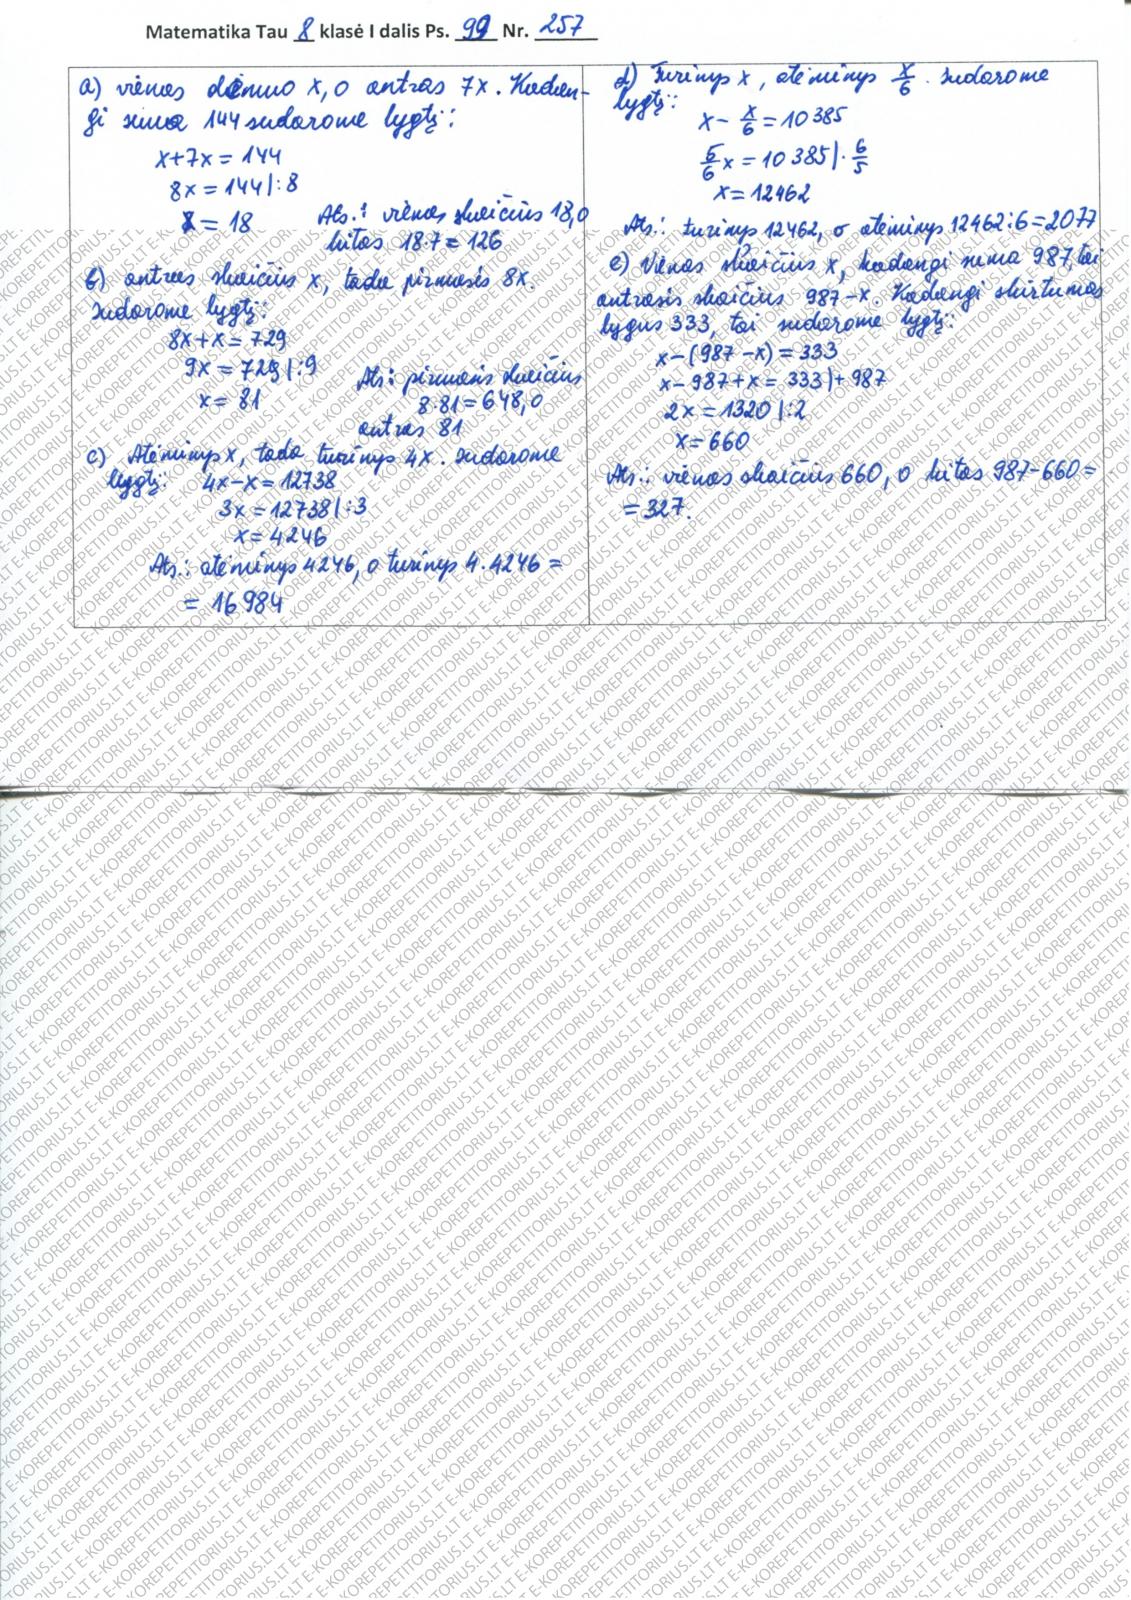 Matematika Tau 8 klasė I dalis Ps. 99 Nr. 257
a) vienas dėmuo x, o antras 7x. Kadan-
gi suma 144 sudarome lygtį:
x+7x = 144
8x = 144 |:8
x = 18
Ats.: vienas skaičius 18, o
kitas 18·7 = 126
b) antras skaičius x, tada pirmasis 8x.
sudarome lygtį:
8x+x = 729
9x = 729 |:9
x = 81
Ats.: pirmasis skaičius
8·81 = 648, o
antras 81
c) Atėminys x, tada turinys 4x. sudarome
lygtį:
4x-x = 12738
3x = 12738 |:3
x = 4246
Ats.: atėminys 4246, o turinys 4·4246 =
= 16 984
d) Turinys x, atėminys x/6. sudarome
lygtį:
x - x/6 = 10 385
5/6 x = 10 385 |· 6/5
x = 12462
Ats.: turinys 12462, o atėminys 12462:6 = 2077
e) Vienas skaičius x, kadangi suma 987, tai
antrasis skaičius 987-x. Kadangi skirtumas
lygus 333, tai sudarome lygtį:
x-(987-x) = 333
x-987+x = 333 |+ 987
2x = 1320 |:2
x = 660
Ats.: vienas skaičius 660, o kitas 987-660 =
= 327.
E-KOREPETITORIUS.LT